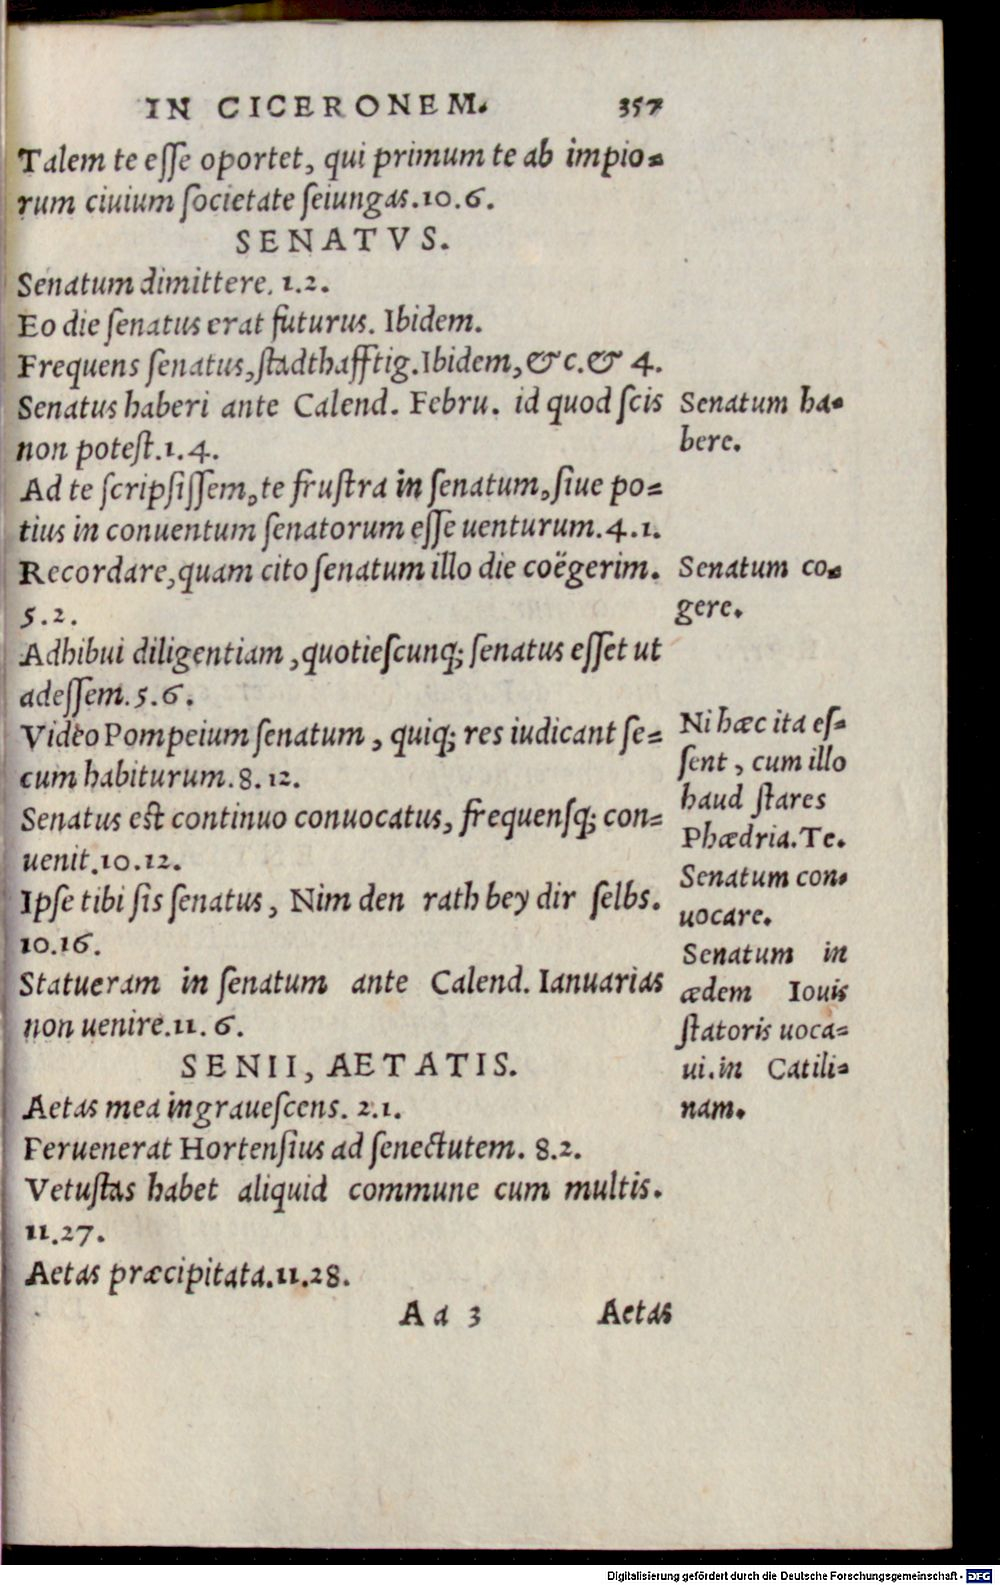 IN CICERONEM. 357
Talem te eſſe oportet, qui primum te ab impio=
rum ciuium ſocietate ſeiungas.10.6.
SENATVS.
Senatum dimittere. 1.2.
Eo die ſenatus erat futurus. Ibidem.
Frequens ſenatus, ſtadthafftig. Ibidem, & c. & 4.
Senatus haberi ante Calend. Febru. id quod ſcis
non poteſt.1.4.
Ad te ſcripſiſſem, te fruſtra in ſenatum, ſiue po=
tius in conuentum ſenatorum eſſe uenturum.4.1.
Recordare, quam cito ſenatum illo die coëgerim.
5.2.
Adhibui diligentiam, quotieſcunq; ſenatus eſſet ut
adeſſem.5.6.
Video Pompeium ſenatum, quiq; res iudicant ſe=
cum habiturum.8.12.
Senatus eſt continuo conuocatus, frequenſq; con=
uenit.10.12.
Ipſe tibi ſis ſenatus, Nim den rath bey dir ſelbs.
10.16.
Statueram in ſenatum ante Calend. Ianuarias
non uenire.11.6.
SENII, AETATIS.
Aetas mea ingraueſcens. 2.1.
Peruenerat Hortenſius ad ſenectutem. 8.2.
Vetuſtas habet aliquid commune cum multis.
11.27.
Aetas præcipitata.11.28.
Aa 3 Aetas
Senatum ha=
bere.
Senatum co=
gere.
Ni hæc ita eſ=
ſent, cum illo
haud ſtares
Phædria. Te.
Senatum con=
uocare.
Senatum in
ædem Iouis
ſtatoris uoca=
ui. in Catili=
nam.
Digitalisierung gefördert durch die Deutsche Forschungsgemeinschaft - DFG